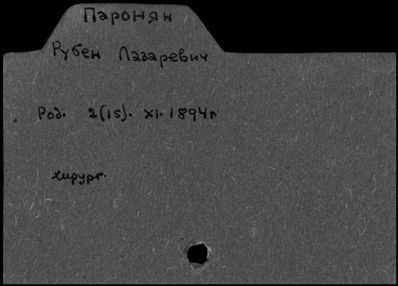 Паронян
Рубен Лазаревич
Род. 2(15). XI. 1894г
хирург.